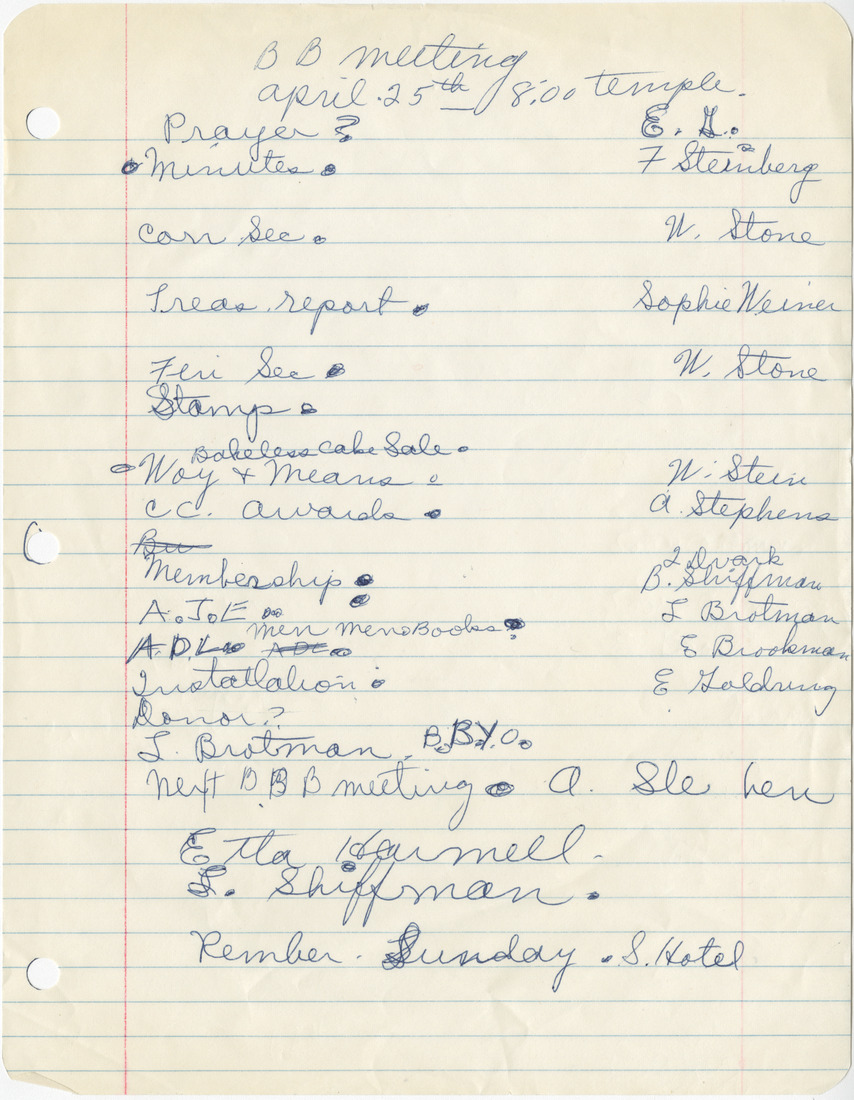 B B meeting
april. 25th 8:00 temple.
Prayer ? E. G.
Minutes. F Steinberg
Corr Sec. W. Stone
Treas. report. Sophie Weiner
Fin Sec. W. Stone
Stamp.
Bakeless Cake Sale.
Way + Means. W. Stein
CC. awards. A. Stephens
Membership. B. Shiffman
A.J.E L Brotman
Men Mens Books?
A.D.L. ADL E Brookman
Installation. E Goldring
Donor?
L. Brotman. B.B.Y.O.
next B B B meeting. A.
Etta Harmell.
L. Shiffman.
Rember. Sunday. S. Hotel